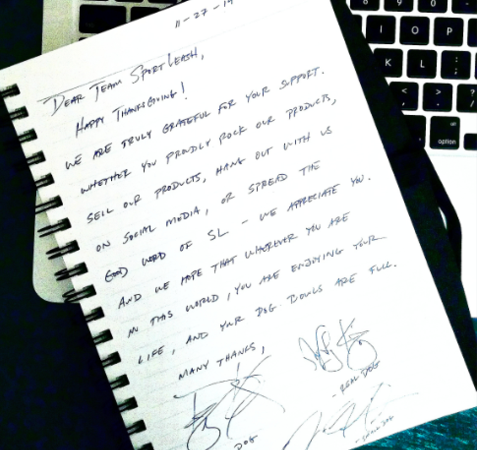 11-27-19
DEAR TEAM SPORTLEASH,
HAPPY THANKSGIVING!
WE ARE TRULY GRATEFUL FOR YOUR SUPPORT.
WHETHER YOU PROUDLY ROCK OUR PRODUCTS,
SELL OUR PRODUCTS, HANG OUT WITH US
ON SOCIAL MEDIA, OR SPREAD THE
GOOD WORD OF SL - WE APPRECIATE YOU.
AND WE HOPE THAT WHEREVER YOU ARE
IN THIS WORLD, YOU ARE ENJOYING YOUR
LIFE, AND YOUR DOG BOWLS ARE FULL.
MANY THANKS,
- REAL DOG
DOG
I O P
K L : ;
< , > .
option